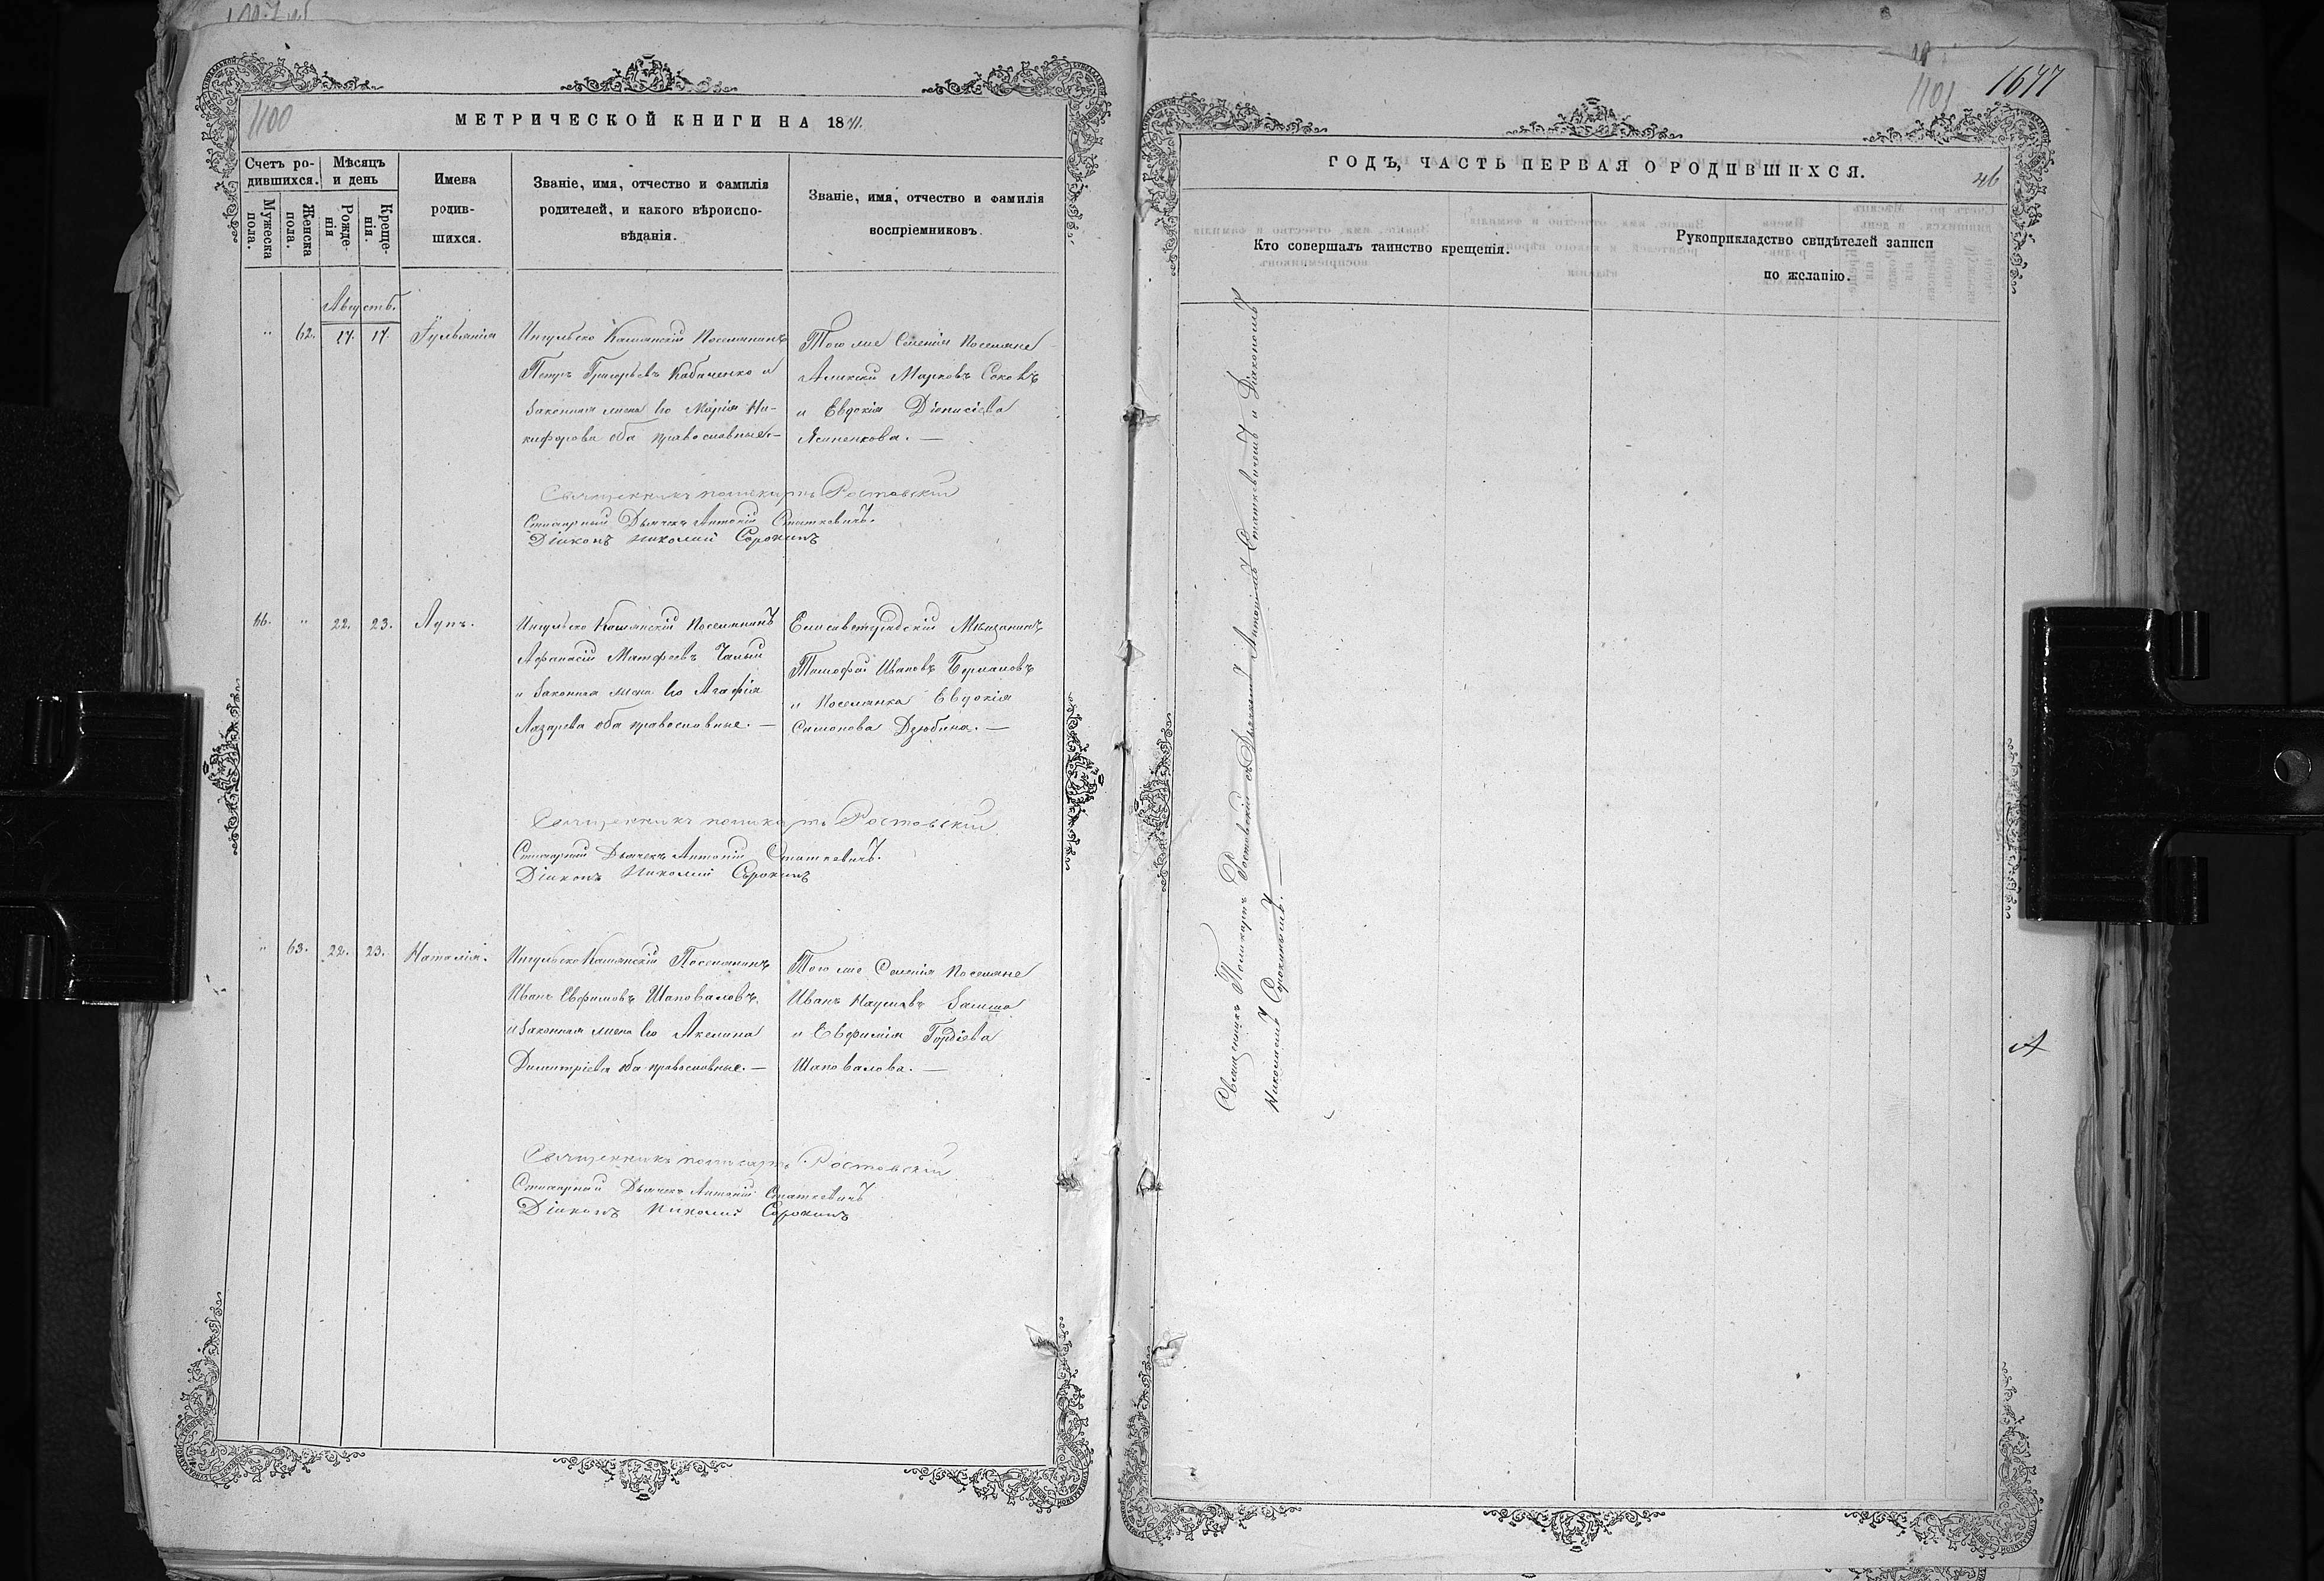 1100
МЕТРИЧЕСКОЙ КНИГИ НА 1871.
Счетъ ро-
дившихся.
Мѣсяцъ
и день
Мужеска
пола.
Женска
пола.
Рожде-
нія
Креще-
нія.
Имена
родив-
шихся.
Званіе, имя, отчество и фамилія
родителей, и какого вѣроиспо-
вѣданія.
Званіе, имя, отчество и фамилія
воспріемниковъ.
Августъ.
" 62. 17. 17. Іуліанія
Ингульско Камянскій Поселянинъ
Петръ Григорьевъ Кабаченко и
законная жена его Марія Ни-
кифорова оба православные.—
Того же Селенія Поселяне
Алексій Марковъ Соковъ
и Евдокія Діонисіева
Ясиненкова.—
Священникъ Поликарпъ Ростовскій
Стихарный Дьячекъ Антоній Статкевичъ.
Діаконъ Николай Сорокинъ
66. " 22. 23. Лупъ.
Ингульско Камянскій Поселянинъ
Афанасій Матфеевъ Чалый
и законная жена его Агафія
Лазарева оба православные.—
Елисаветградскій Мѣщанинъ
Тимофей Ивановъ
и Поселянка Евдокія
Симонова Дзюбина.—
Священникъ Поликарпъ Ростовскій
Стихарный Дьячекъ Антоній Статкевичъ.
Діаконъ Николай Сорокинъ
" 63. 22. 23. Наталія.
Ингульско Камянскій Поселянинъ
Иванъ Евфимовъ Шаповаловъ,
и законная жена его Акелина
Димитріева оба православные.—
Того же Селенія Поселяне
Иванъ Наумовъ
и Евфимія Гордіева
Шаповалова.—
Священникъ Поликарпъ Ростовскій
Стихарный Дьячекъ Антоній Статкевичъ
Діаконъ Николай Сорокинъ
1101
1677
ГОДЪ, ЧАСТЬ ПЕРВАЯ О РОДИВШИХСЯ.
46
Кто совершалъ таинство крещенія.
Рукоприкладство свидѣтелей записи
по желанію.
Священникъ Поликарпъ Ростовскій съ Дьячкомъ Антоніемъ Статкевичемъ и Діакономъ
Николаемъ Сорокинымъ.—